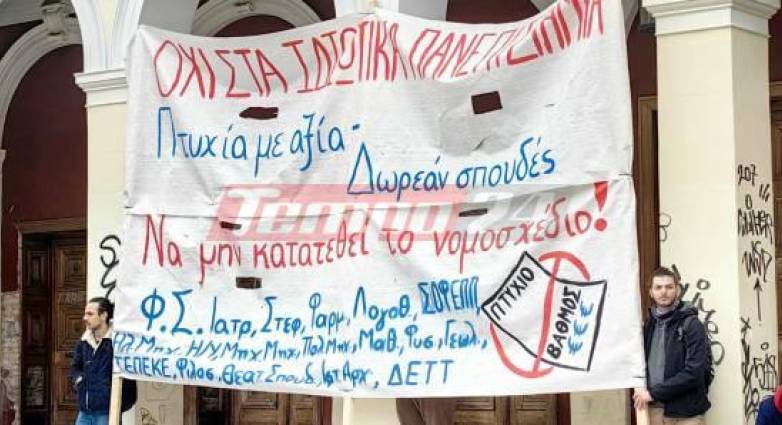 ΟΧΙ ΣΤΑ ΙΔΙΩΤΙΚΑ ΠΑΝΕΠΙΣΤΗΜΙΑ
Πτυχία με αξία -
Δωρεάν σπουδές
Tempo24
Να μην κατατεθεί το νομοσχέδιο!
Φ.Σ. Ιατρ, Στεφ, Φαρμ, Λογοθ, ΣΟΡΕΠΠ,
ΗΛ.Μηχ, Η/Υ, Μηχ. Μηχ, Πολ Μηχ, Μαθ, Φυσ, Γεωλ,
ΤΕΠΕΚΕ, Φιλοσ, Θεατ. Σπουδ, Ιστ Αρχ, ΔΕΤΤ
ΠΤΥΧΙΟ
ΒΑΘΜΟΣ
€
€
€
207